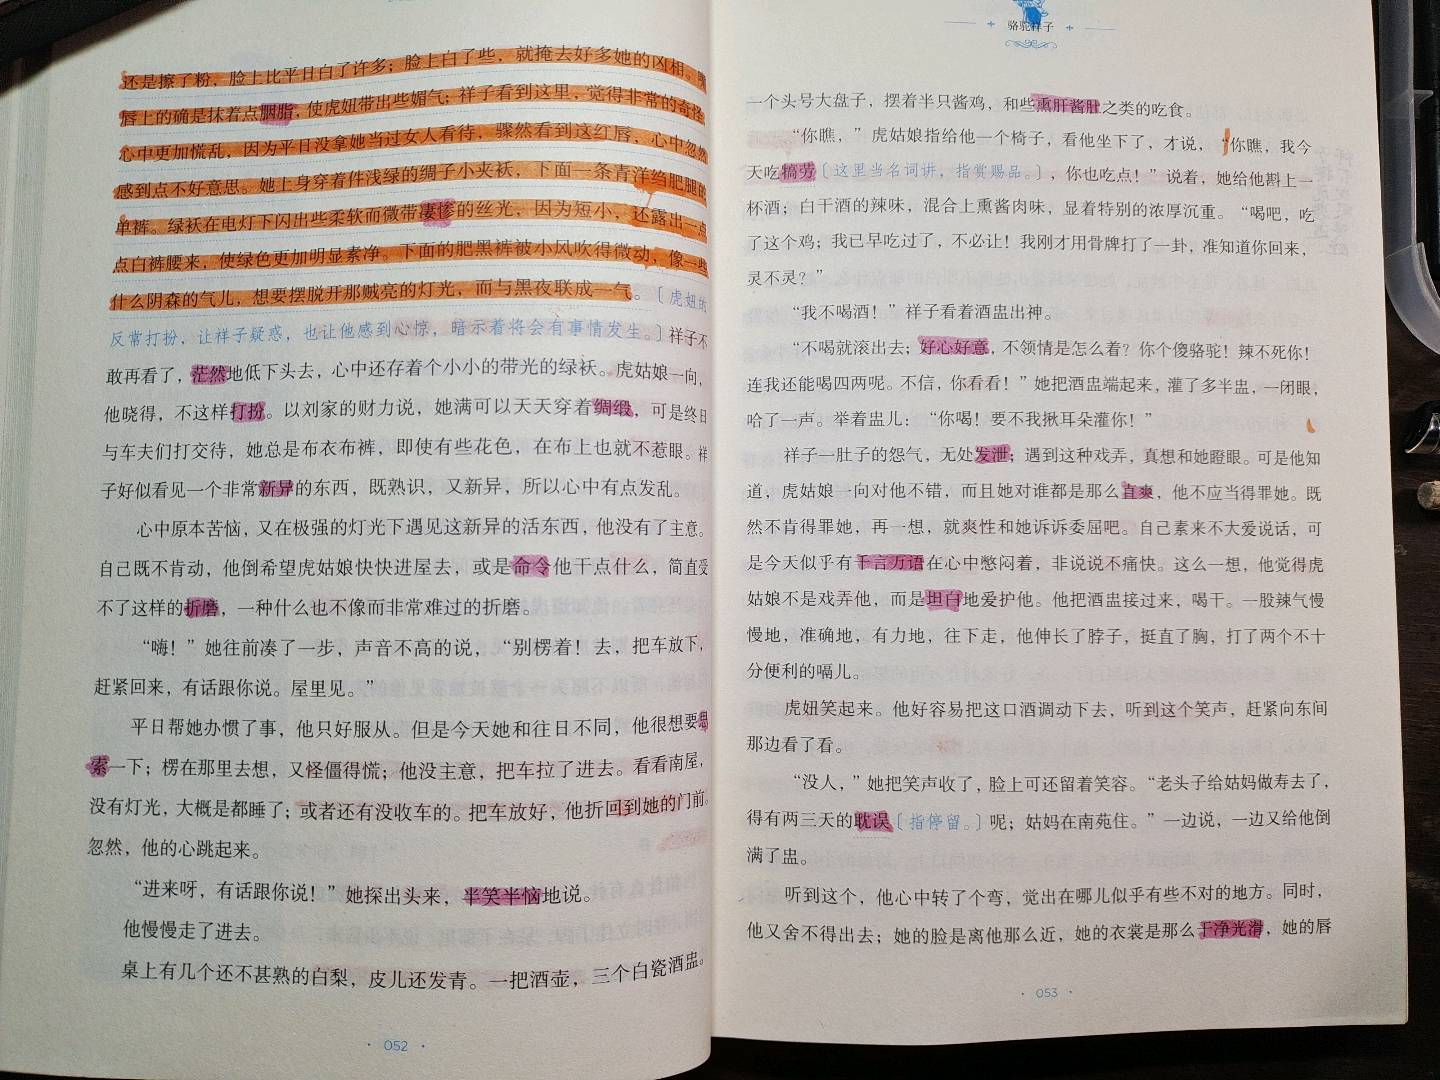 还是擦了粉，脸上比平日白了许多；脸上白了些，就掩去好多她的凶相。
唇上的确是抹着点胭脂，使虎妞带出些媚气；祥子看到这里，觉得非常的奇怪，
心中更加慌乱，因为平日没拿她当过女人看待，骤然看到这红唇，心中忽然
感到点不好意思。她上身穿着件浅绿的绸子小夹袄，下面一条青洋绉肥腿的
单裤。绿袄在电灯下闪出些柔软而微带凄惨的丝光，因为短小，还露出一点
点白裤腰来，使绿色更加明显素净。下面的肥黑裤被小风吹得微动，像一些
什么阴森的气儿，想要摆脱开那贼亮的灯光，而与黑夜联成一气。〔虎妞的
反常打扮，让祥子疑惑，也让他感到心惊，暗示着将会有事情发生。〕祥子不
敢再看了，茫然地低下头去，心中还存着个小小的带光的绿袄。虎姑娘一向，
他晓得，不这样打扮。以刘家的财力说，她满可以天天穿着绸缎，可是终日
与车夫们打交待，她总是布衣布裤，即使有些花色，在布上也就不惹眼。祥
子好似看见一个非常新异的东西，既熟识，又新异，所以心中有点发乱。
心中原本苦恼，又在极强的灯光下遇见这新异的活东西，他没有了主意。
自己既不肯动，他倒希望虎姑娘快快进屋去，或是命令他干点什么，简直受
不了这样的折磨，一种什么也不像而非常难过的折磨。
“嗨！”她往前凑了一步，声音不高的说，“别楞着！去，把车放下，
赶紧回来，有话跟你说。屋里见。”
平日帮她办惯了事，他只好服从。但是今天她和往日不同，他很想要思
索一下；楞在那里去想，又怪僵得慌；他没主意，把车拉了进去。看看南屋，
没有灯光，大概是都睡了；或者还有没收车的。把车放好，他折回到她的门前。
忽然，他的心跳起来。
“进来呀，有话跟你说！”她探出头来，半笑半恼地说。
他慢慢走了进去。
桌上有几个还不甚熟的白梨，皮儿还发青。一把酒壶，三个白瓷酒盅。
052
骆驼祥子
一个头号大盘子，摆着半只酱鸡，和些熏肝酱肚之类的吃食。
“你瞧，”虎姑娘指给他一个椅子，看他坐下了，才说，“你瞧，我今
天吃犒劳〔这里当名词讲，指赏赐品。〕，你也吃点！”说着，她给他斟上一
杯酒；白干酒的辣味，混合上熏酱肉味，显着特别的浓厚沉重。“喝吧，吃
了这个鸡；我已早吃过了，不必让！我刚才用骨牌打了一卦，准知道你回来，
灵不灵？”
“我不喝酒！”祥子看着酒盅出神。
“不喝就滚出去；好心好意，不领情是怎么着？你个傻骆驼！辣不死你！
连我还能喝四两呢。不信，你看看！”她把酒盅端起来，灌了多半盅，一闭眼，
哈了一声。举着盅儿：“你喝！要不我揪耳朵灌你！”
祥子一肚子的怨气，无处发泄；遇到这种戏弄，真想和她瞪眼。可是他知
道，虎姑娘一向对他不错，而且她对谁都是那么直爽，他不应当得罪她。既
然不肯得罪她，再一想，就爽性和她诉诉委屈吧。自己素来不大爱说话，可
是今天似乎有千言万语在心中憋闷着，非说说不痛快。这么一想，他觉得虎
姑娘不是戏弄他，而是坦白地爱护他。他把酒盅接过来，喝干。一股辣气慢
慢地，准确地，有力地，往下走，他伸长了脖子，挺直了胸，打了两个不十
分便利的嗝儿。
虎妞笑起来。他好容易把这口酒调动下去，听到这个笑声，赶紧向东间
那边看了看。
“没人，”她把笑声收了，脸上可还留着笑容。“老头子给姑妈做寿去了，
得有两三天的耽误〔指停留。〕呢；姑妈在南苑住。”一边说，一边又给他倒
满了盅。
听到这个，他心中转了个弯，觉出在哪儿似乎有些不对的地方。同时，
他又舍不得出去；她的脸是离他那么近，她的衣裳是那么干净光滑，她的唇
053